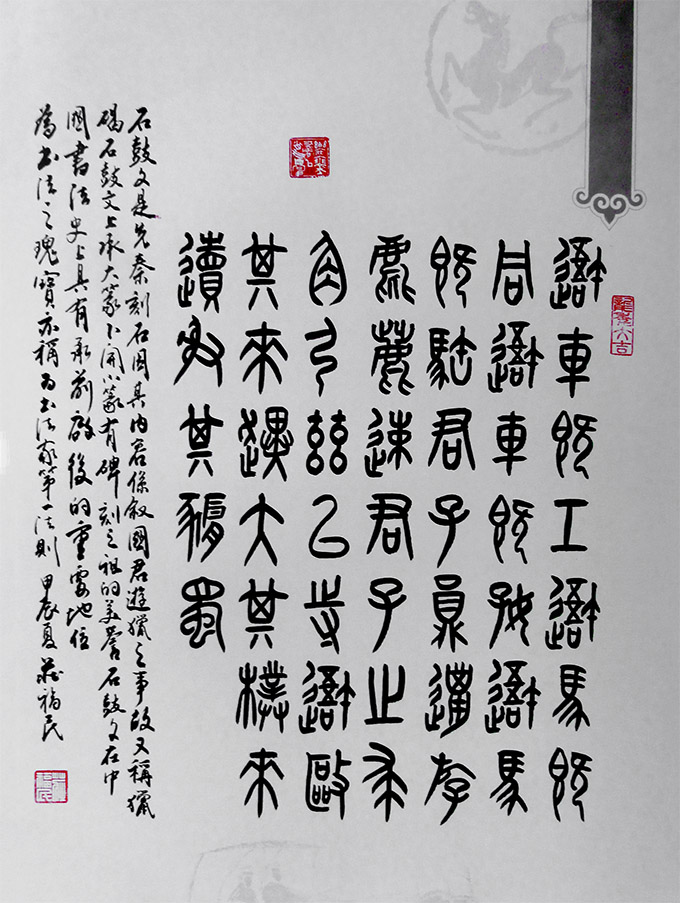 避車既工避馬既
同避車既好避馬
既君子員邋斿
麀鹿速君子之求
角弓茲以寺避敺
其來趩大其樸來
䢱射其豜蜀
石鼓文是先秦刻石因其內容係敘國君遊獵之事故又稱獵
碣石鼓文上承大篆下開小篆有碑刻之祖的美譽石鼓文在中
國書法史上具有承前啟後的重要地位
為書法之瑰寶亦稱為書法家第一法則 甲辰夏 莊福民
龍年大吉